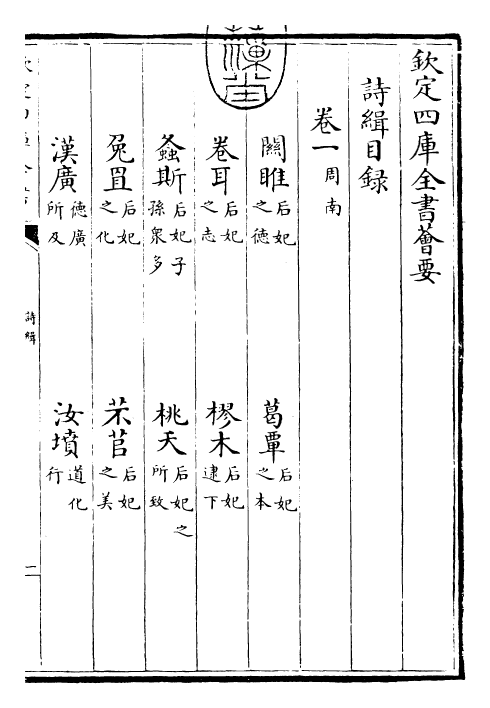 欽定四庫全書薈要
詩緝目録
卷一周南
關雎后妃之德
葛覃后妃之本
卷耳后妃之志
樛木后妃逮下
螽斯后妃子孫衆多
桃夭后妃之所致
兔罝后妃之化
芣苢后妃之美
漢廣德廣所及
汝墳道化行
詩緝
一